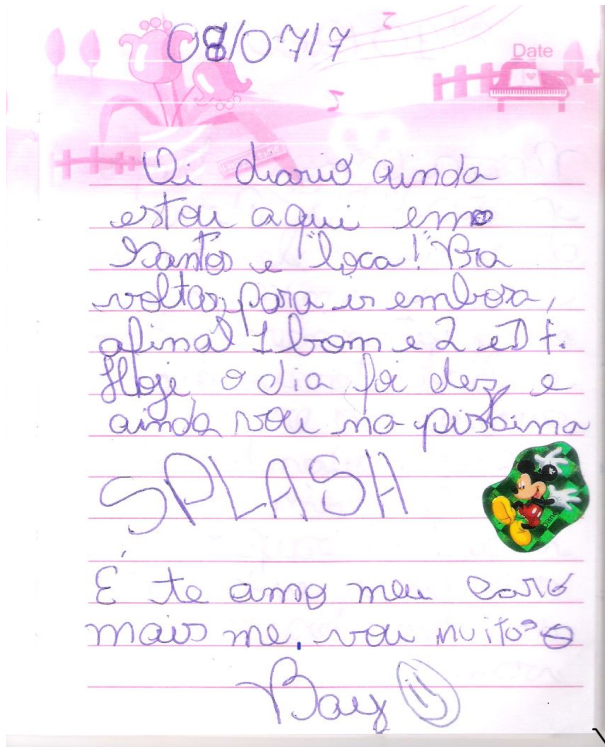 08/07/7
Date
Oi diario ainda
estou aqui em
Santos e "loca! Pra
voltar, para ir embora,
afinal 1 bom e 2 e D+.
Hoje o dia foi dez, e
ainda vou na pisbina
SPLASH
É te amo meu caro
mais me, vou muitos
Bay